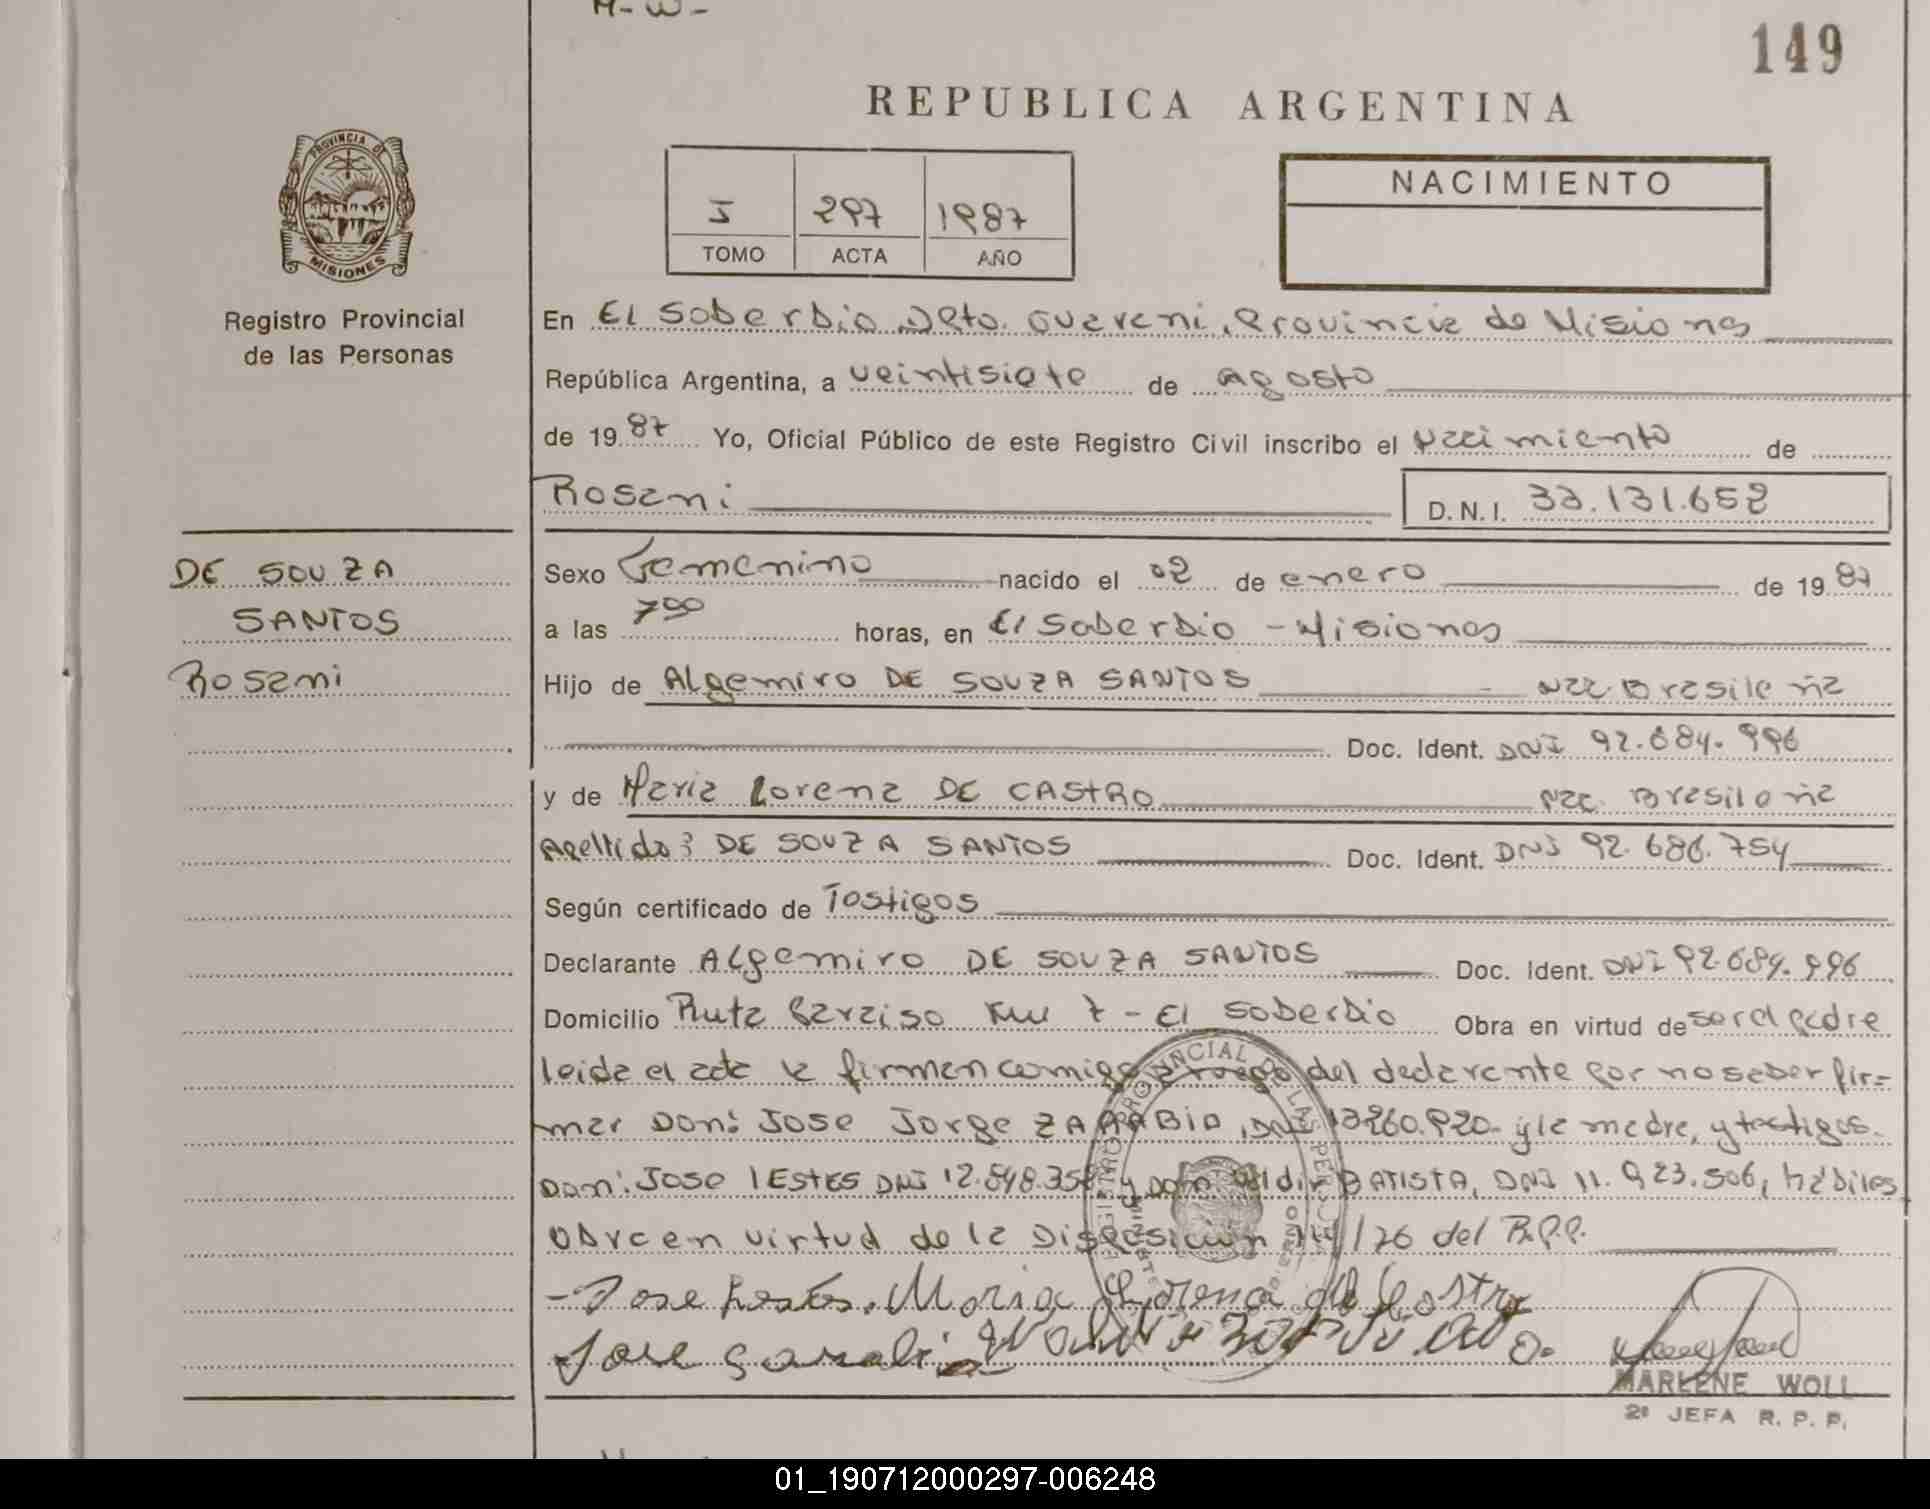 149
REPUBLICA ARGENTINA
PROVINCIA DE
MISIONES
Registro Provincial
de las Personas
I 297 1987
TOMO ACTA AÑO
NACIMIENTO
En El Soberbio, Dpto. Guarani, Provincia de Misiones
República Argentina, a veintisiete de agosto
de 1987 Yo, Oficial Público de este Registro Civil inscribo el Nacimiento de
Rosani
D.N.I. 33.131.652
DE SOUZA
SANTOS
Rosani
Sexo Femenino nacido el 02 de enero de 1987
a las 700 horas, en El Soberbio - Misiones
Hijo de Algemiro DE SOUZA SANTOS Nac. Brasileña
Doc. Ident. DNI 92.684.996
y de Maria Lorena DE CASTRO Nac. Brasileña
Apellido: DE SOUZA SANTOS Doc. Ident. DNI 92.686.754
Según certificado de Testigos
Declarante Algemiro DE SOUZA SANTOS Doc. Ident. DNI 92.684.996
Domicilio Ruta Paraiso Km 7 - El Soberbio Obra en virtud de ser el padre
leida el acta la firman conmigo a ruego del declarante por no saber fir=
mar Don: Jose Jorge ZARABIA, DNI 13260.920- y la madre, y testigos-
Don: Jose LESTES DNI 12.848.358 y Don Valdir BATISTA, DNI 11.923.506, hábiles
Obra en virtud de la Disposicion /76 del R.P.P.
Jose Lestes. Maria Lorena de Castro
Jose Sarabia
MARLENE WOLL
2º JEFA R. P. P.
01_190712000297-006248